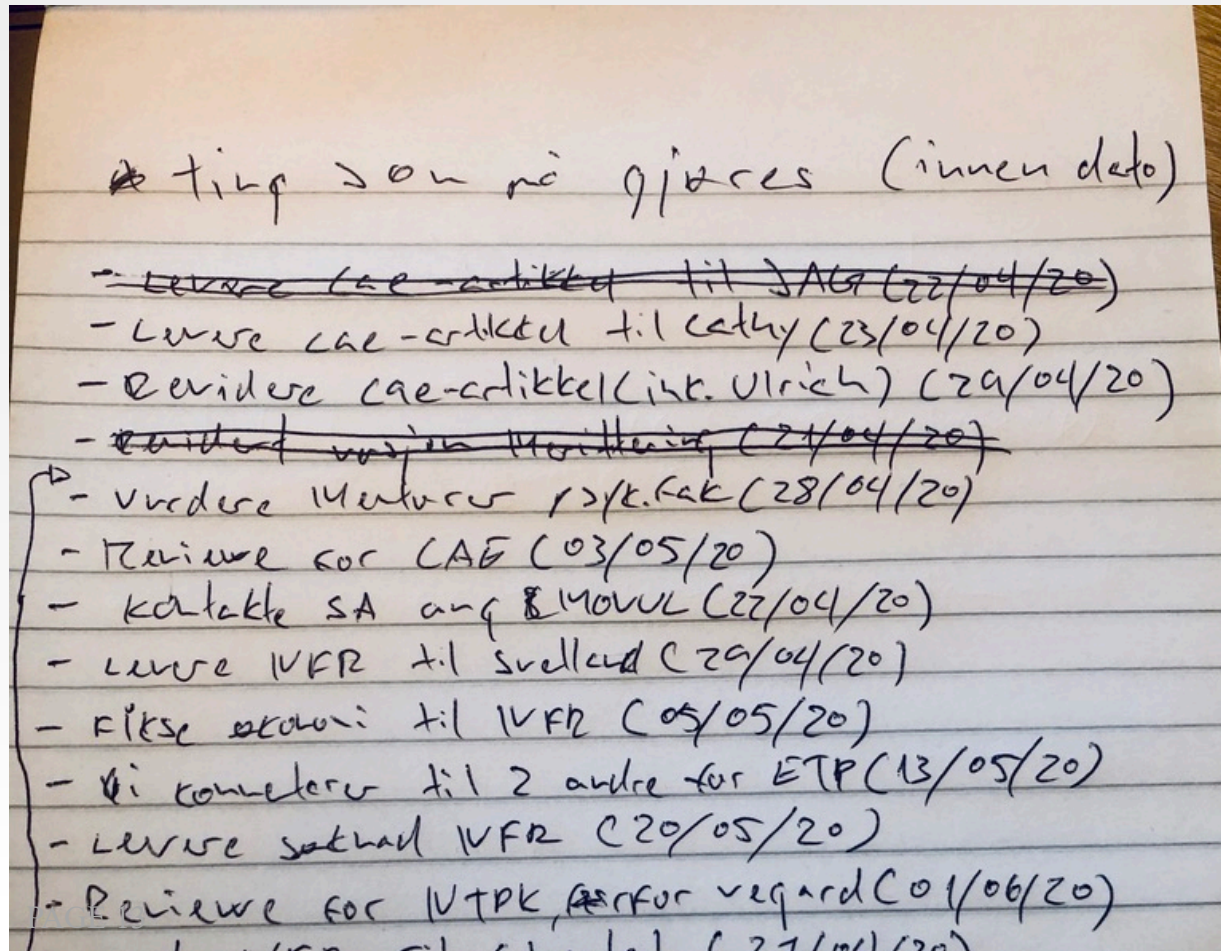 ting som må gjøres (innen dato)
- Levere cae-artikkel til JAG (22/04/20)
- Levere cae-artikkel til Cathy (23/04/20)
- Revidere cae-artikkel (ink. Ulrich) (29/04/20)
- (21/04/20)
- Vurdere psyk.fak (28/04/20)
- Reviewe for CAE (03/05/20)
- Kontakte SA ang (22/04/20)
- Levere NFR til (29/04/20)
- Fikse økonomi til NFR (05/05/20)
- Gi kommetarer til 2 andre for ETP (13/05/20)
- Levere søknad NFR (20/05/20)
- Reviewe for NTPK, for vegard (01/06/20)
NFR til